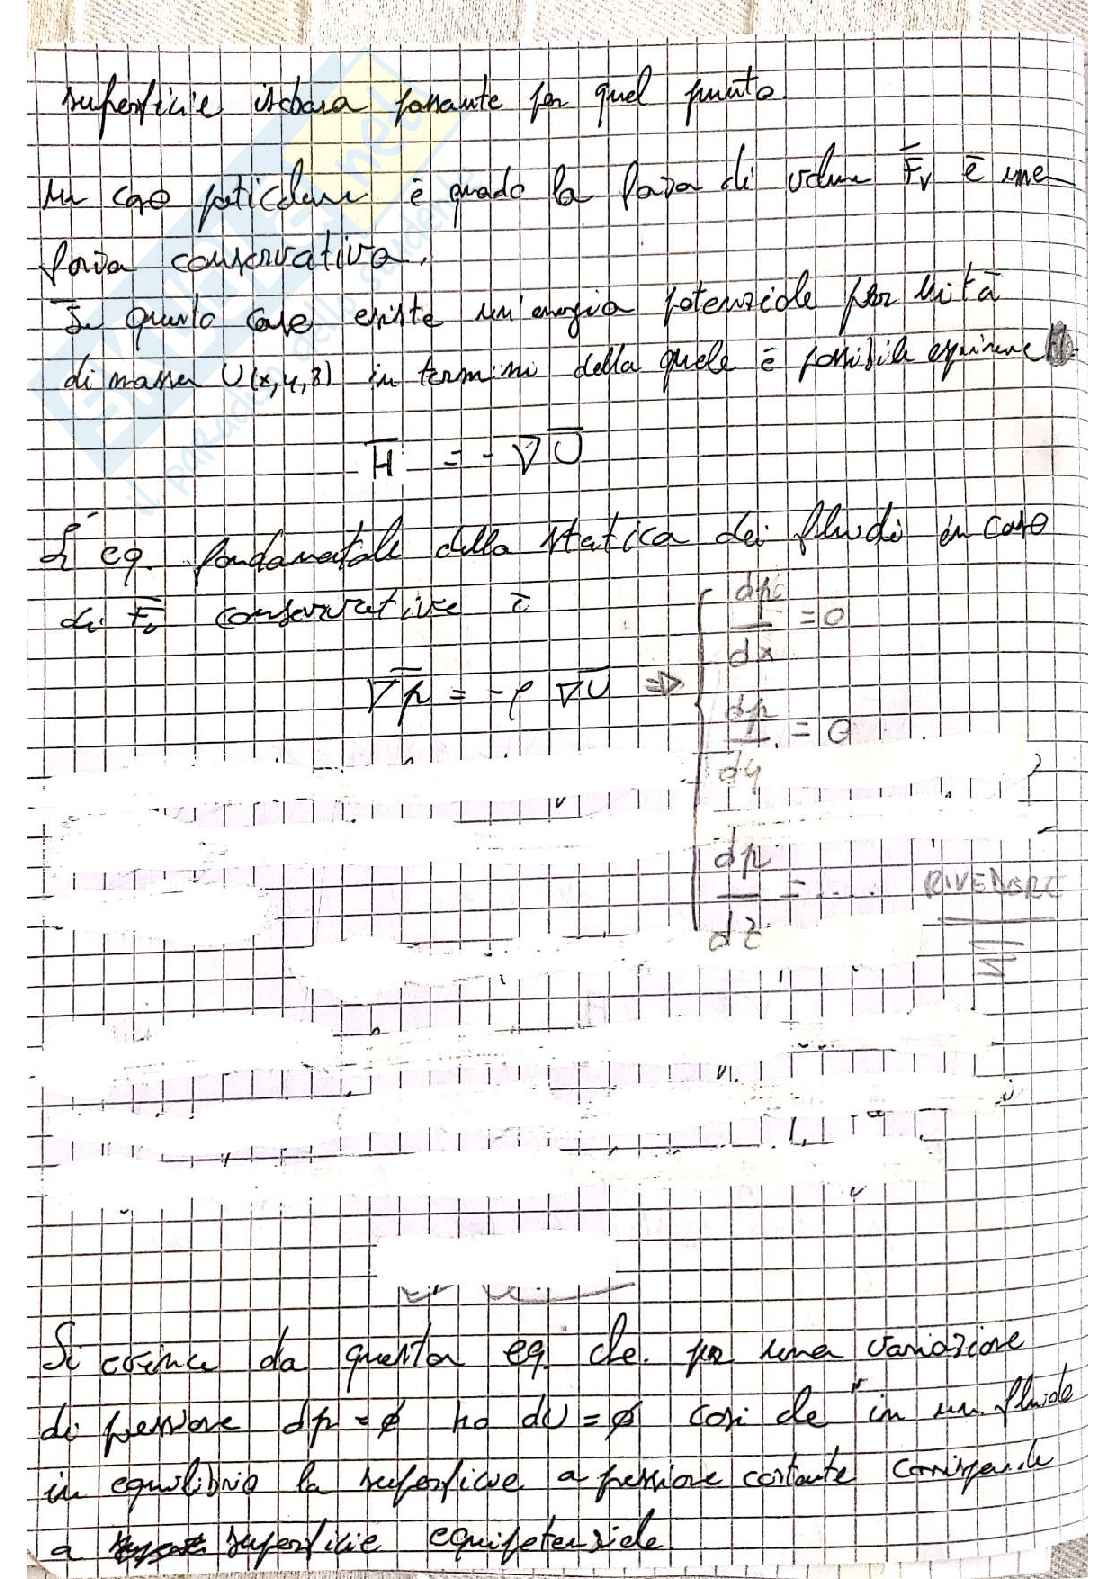 superficie isobara passante per quel punto
un caso particolare è quado la forza di volume F̅v è una
forza conservativa.
In questo caso esiste un'energia potenziale per unità
di massa U(x,y,z) in termini della quale è possibile esprimere
H̅ = - ∇̅U̅
L'eq. fondamentale della statica dei fluidi in caso
di F̅v conservative è
∇̅p̅ = -ρ ∇̅U̅ ⇒
dp/dx = 0
dp/dy = 0
dp/dz = .... RIVEDERE
Si evince da questa eq. che per una variazione
di pressione dp = ∅ ho dU = ∅ così che "in un fluido
in equilibrio la superficie a pressione costante corrisponde
a superficie equipotenziale